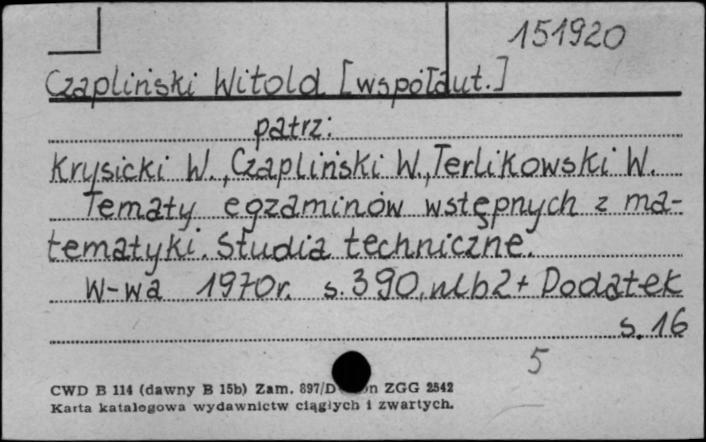 151920
Czapliński Witold [współaut.]
patrz:
Krysicki W., Czapliński W., Terlikowski W.
Tematy egzaminów wstępnych z ma-
tematyki. Studia techniczne.
W-wa 1970r. s. 390, nlb 2 + Dodatek
s. 16
5
CWD B 114 (dawny B 15b) Zam. 897/D ZGG 2542
Karta katalogowa wydawnictw ciągłych i zwartych.